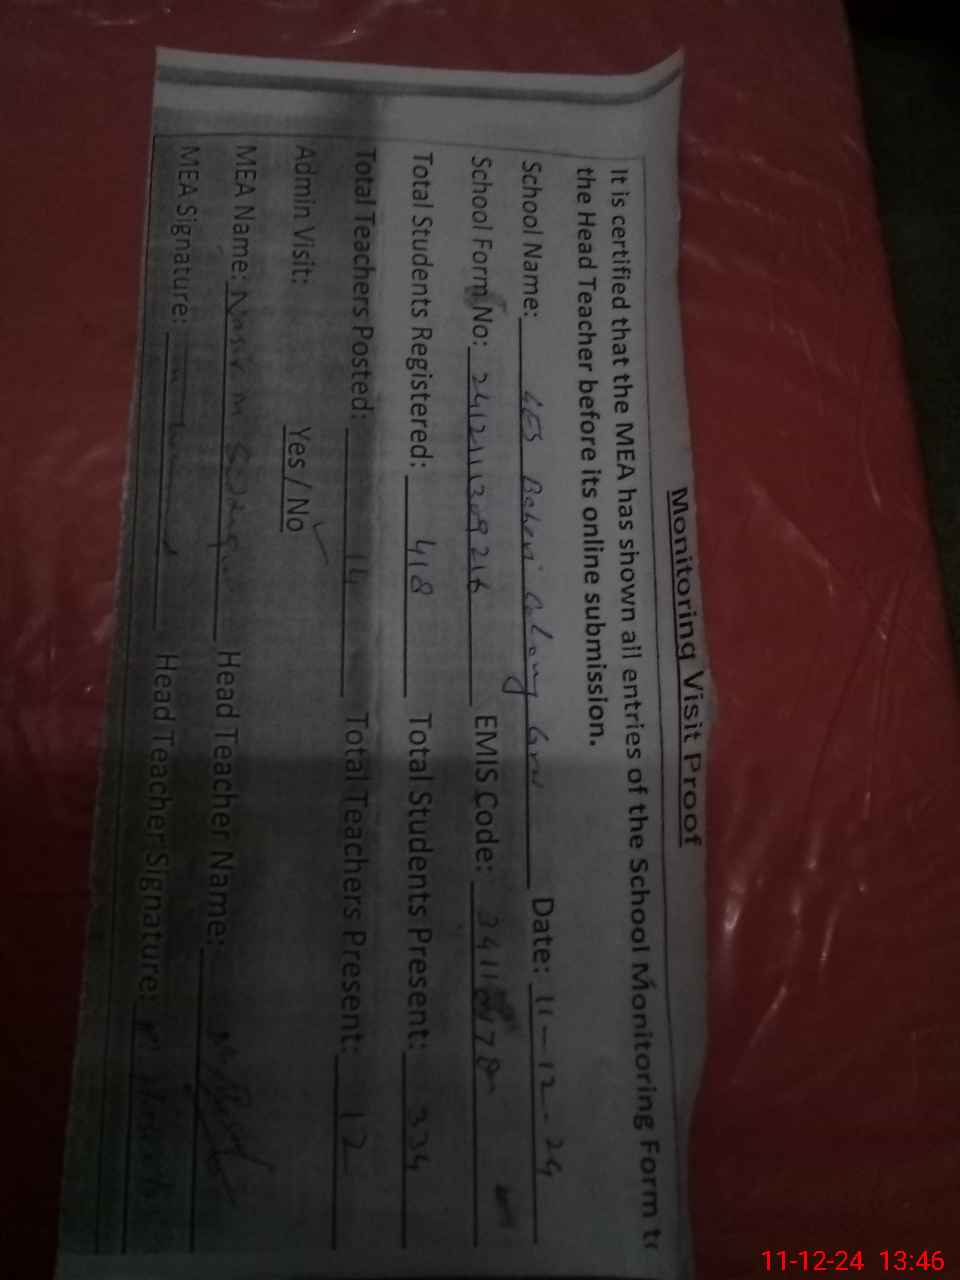 Monitoring Visit Proof
It is certified that the MEA has shown all entries of the School Monitoring Form to
the Head Teacher before its online submission.
School Name: GES Colony Date: 11-12-24
School Form No: EMIS Code:
Total Students Registered: 418 Total Students Present: 334
Total Teachers Posted: 14 Total Teachers Present: 12
Admin Visit: Yes / No ✓
MEA Name: Nasir Head Teacher Name:
MEA Signature: Head Teacher Signature:
11-12-24 13:46